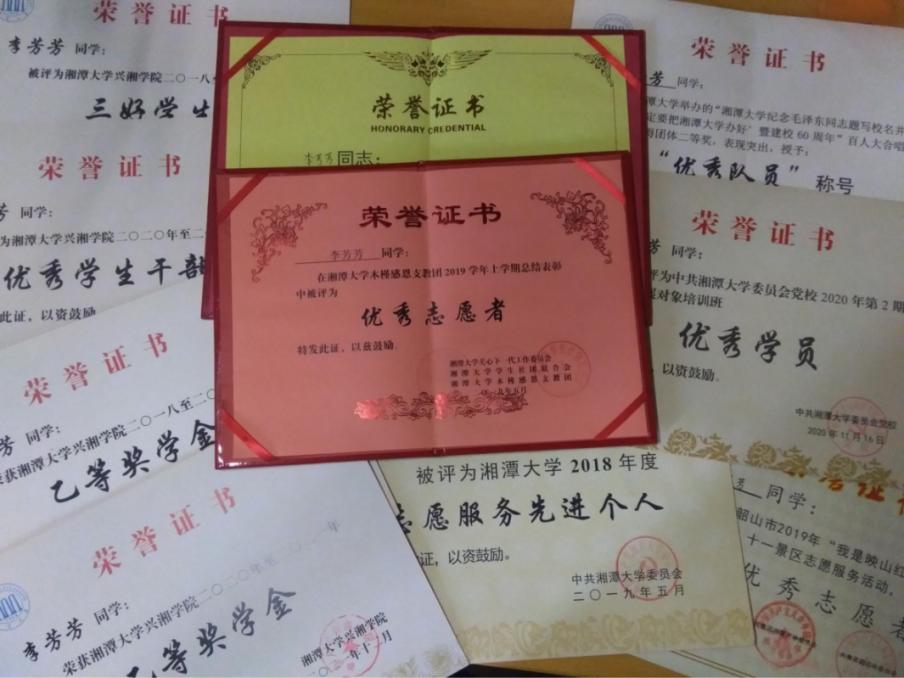 荣誉证书
李芳芳 同学：
被评为湘潭大学兴湘学院二〇一八
三好学生
荣誉证书
芳 同学：
为湘潭大学兴湘学院二〇二〇年至二
优秀学生干部
此证，以资鼓励
荣誉证书
芳 同学：
荣获湘潭大学兴湘学院二〇一八至二〇
乙等奖学金
荣誉证书
李芳芳 同学：
荣获湘潭大学兴湘学院二〇二〇年至二〇二一年
乙等奖学金
湘潭大学兴湘学院
荣誉证书
HONORARY CREDENTIAL
李芳芳同志：
荣誉证书
李芳芳 同学：
在湘潭大学木槿感恩支教团2019学年上学期总结表彰
中被评为
优秀志愿者
特发此证，以兹鼓励。
湘潭大学关心下一代工作委员会
湘潭大学学生社团联合会
湘潭大学木槿感恩支教团
一九年五月
被评为湘潭大学 2018 年度
志愿服务先进个人
证，以资鼓励。
中共湘潭大学委员会
二〇一九年五月
荣誉证书
芳 同学：
潭大学举办的“湘潭大学纪念毛泽东同志题写校名并
定要把湘潭大学办好’暨建校 60 周年”百人大合唱
团体二等奖，表现突出，授予：
“优秀队员”称号
荣誉证书
芳 同学：
评为中共湘潭大学委员会党校 2020 年第 2 期
对象培训班
优秀学员
，以资鼓励。
中共湘潭大学委员会党校
2020 年 11 月 16 日
同学：
韶山市2019年“我是映山红
十一景区志愿服务活动，
优秀志愿者